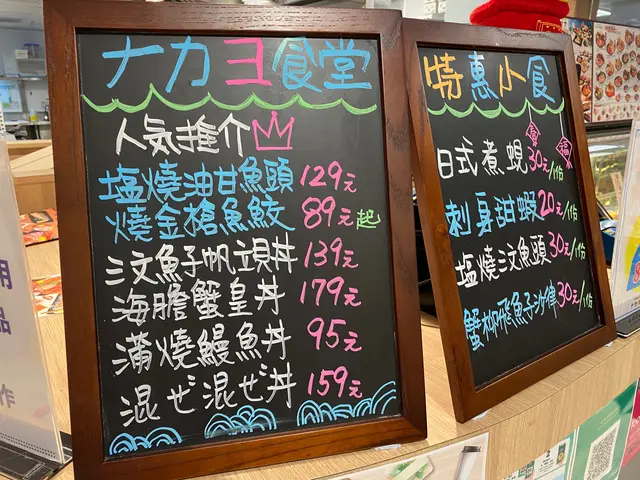 ナカヨ食堂
人気推介
塩燒油甘魚頭 129元
燒金搶魚鮫 89元起
三文魚子帆立貝丼 139元
海膽蟹皇丼 179元
蒲燒鰻魚丼 95元
混ぜ混ぜ丼 159元
特惠小食
日式煮蜆 30元/佔
刺身甜蝦 20元/佔
塩燒三文魚頭 30元/佔
蟹柳飛魚子沙律 30元/佔
用
品
作